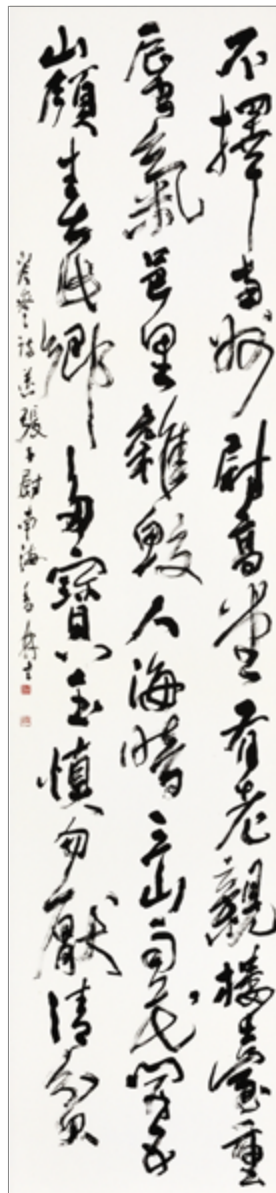 不擇南州尉高堂有老親樓臺重
蜃氣邑里雜鮫人海暗三山雨花明五
嶺春此鄉多寶玉慎勿厭清貧
岑參詩送張子尉南海